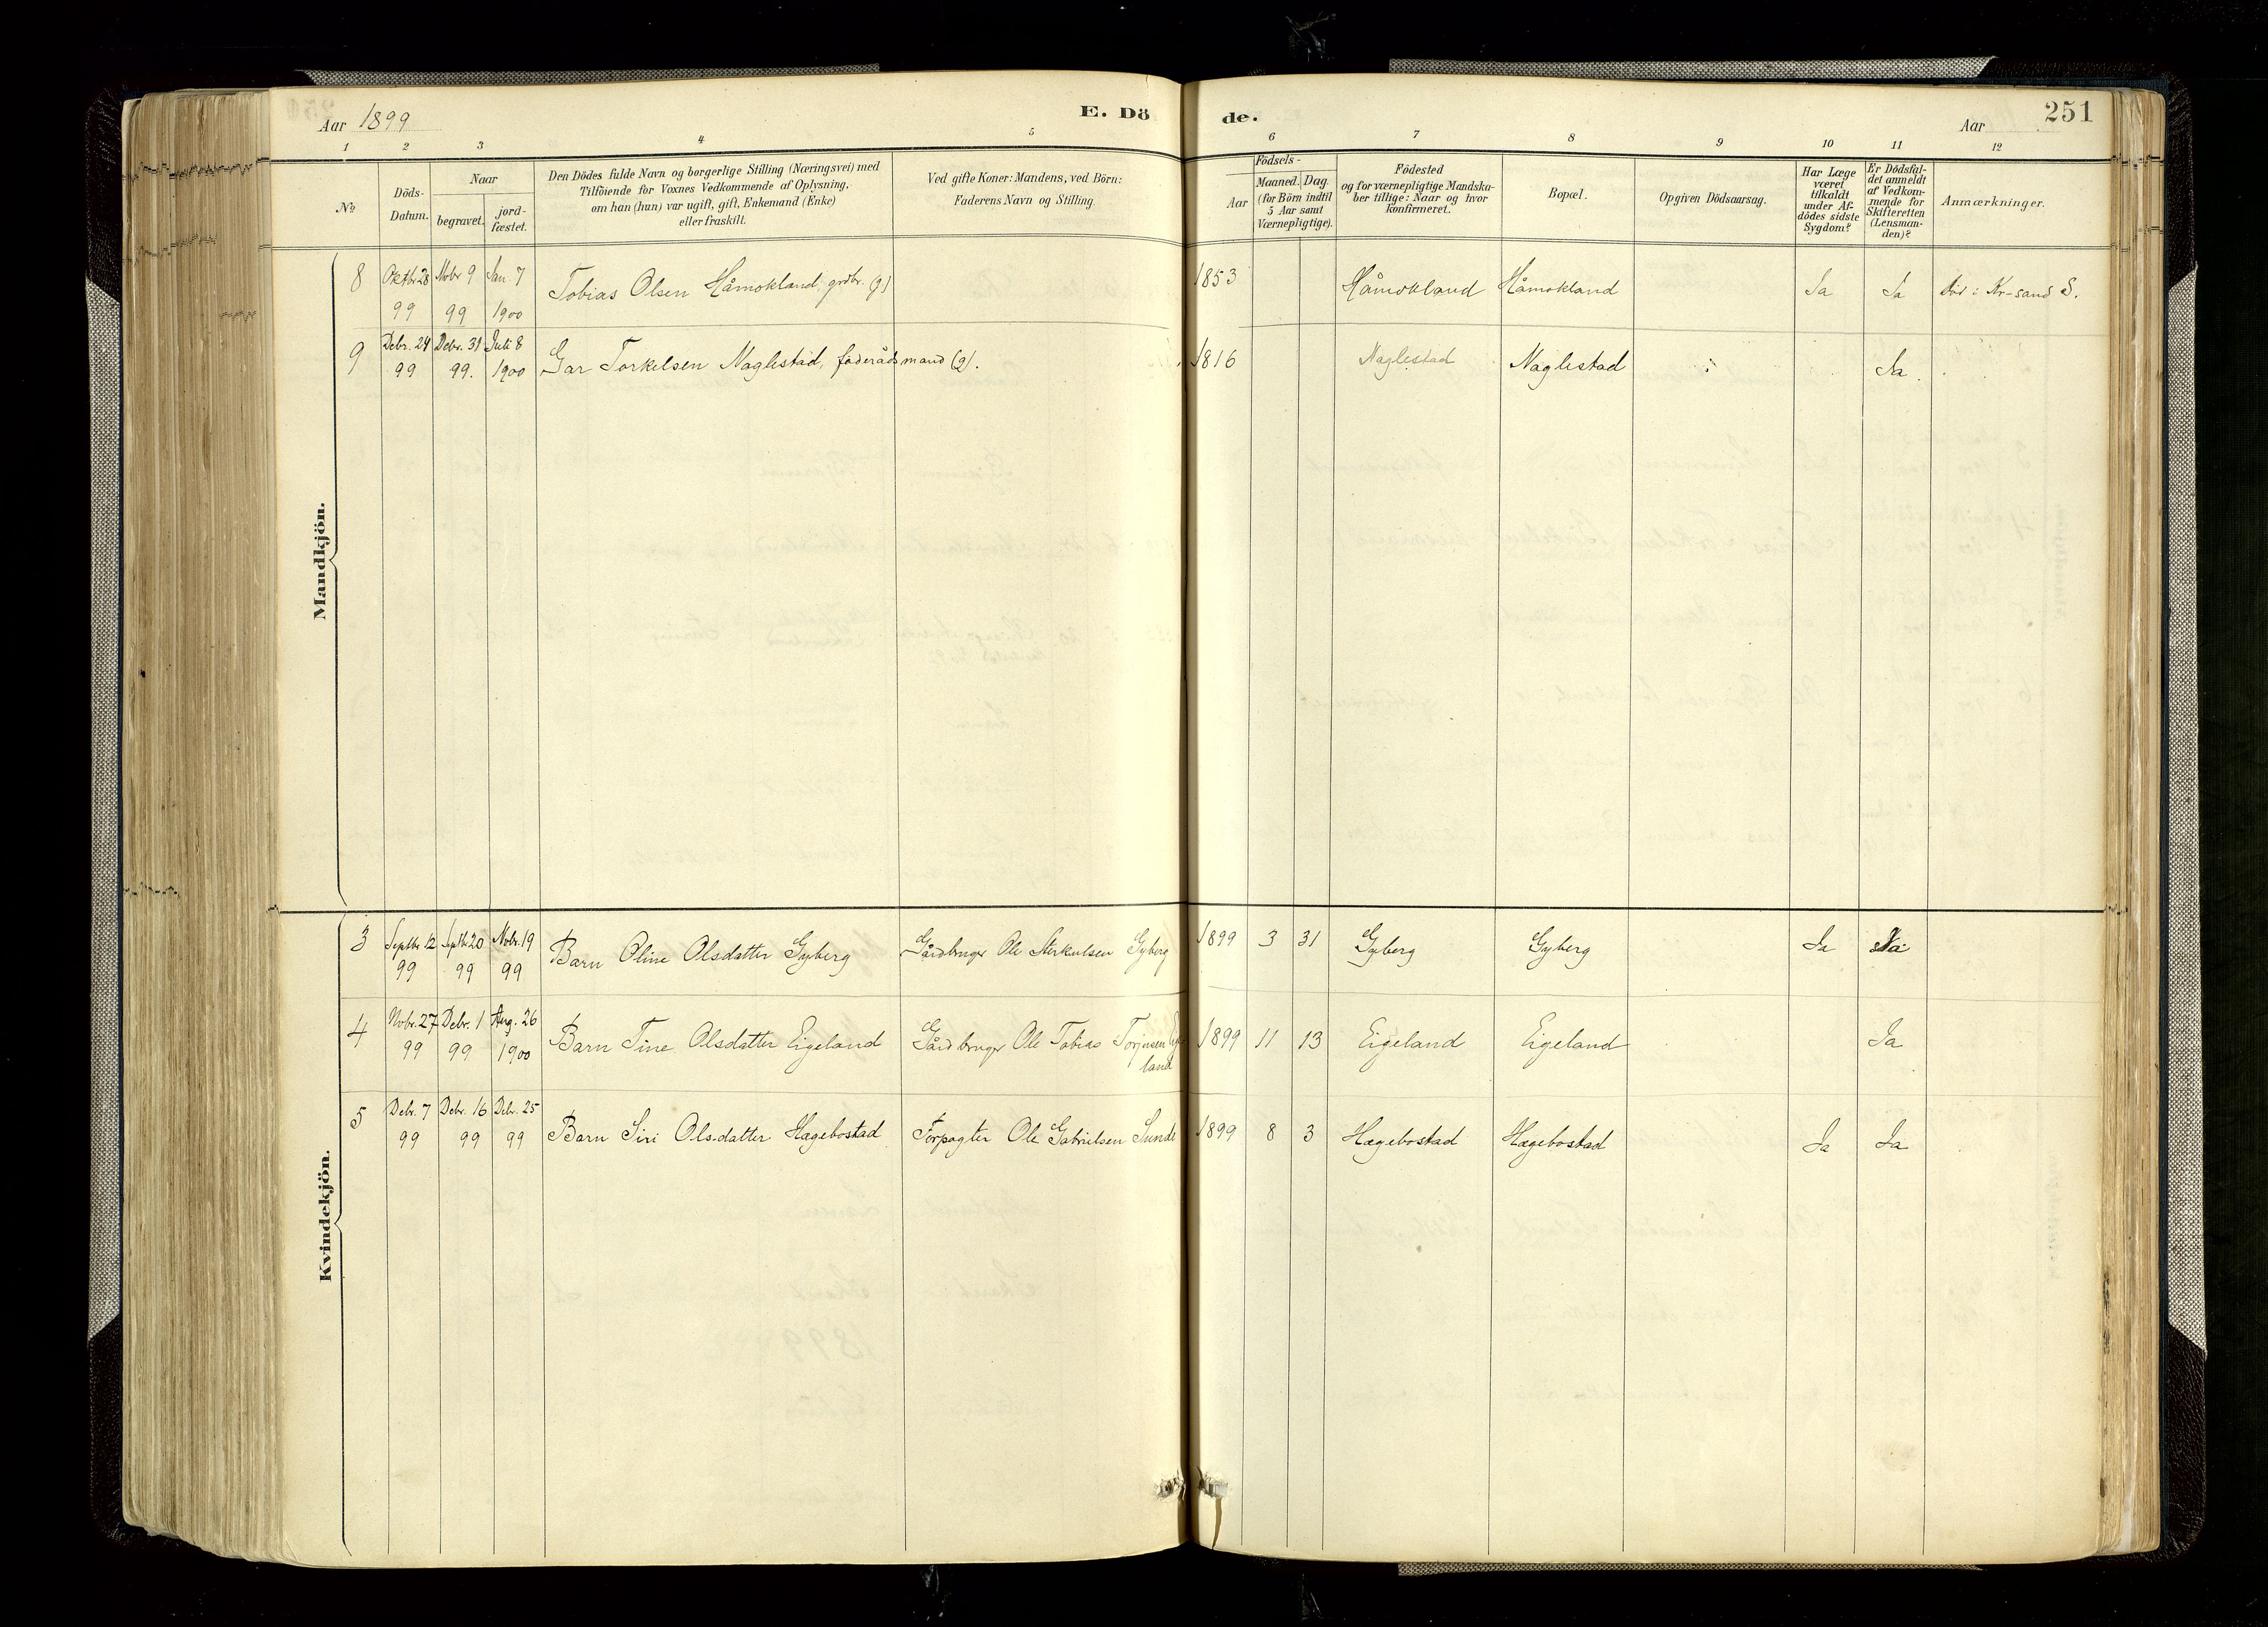 Aar 1899
E. Dö
de.
Aar
251
1 2 3 4 5 6 7 8 9 10 11 12
No
Döds-
Datum.
Naar
begravet.
jord-
fæstet.
Den Dödes fulde Navn og borgerlige Stilling (Næringsvei) med
Tilföiende for Voxnes Vedkommende af Oplysning,
om han (hun) var ugift, gift, Enkemand (Enke)
eller fraskilt.
Ved gifte Koner: Mandens, ved Börn:
Faderens Navn og Stilling.
Födsels-
Aar
Maaned. Dag.
(for Börn indtil
5 Aar samt
Værnepligtige).
Födested
og for værnepligtige Mandska-
ber tillige: Naar og hvor
konfirmeret.
Bopæl.
Opgiven Dödsaarsag.
Har Læge
været
tilkaldt
under Af-
dödes sidste
Sygdom?
Er Dödsfal-
det anmeldt
af Vedkom-
mende for
Skifteretten
(Lensman-
den)?
Anmærkninger.
Mandkjön.
8 Oktbr 28 Nobr 9 Jan. 7
99 99 1900
Tobias Olsen Håmokland, grdbr. (g.) 1853 Håmokland Håmokland Ja Ja Död i Kr-sand S.
9 Debr. 24 Debr. 31 Juli 8
99 99. 1900
Gar Torkelsen Naglestad, føderådsmand (g). 1816 Naglestad Naglestad Ja.
Kvindekjön.
3 Septbr 12 Septbr 20 Nobr. 19
99 99 99
Barn Oline Olsdatter Gyberg Gårdbruger Ole Sterkulsen Gyberg 1899 3 31 Gyberg Gyberg Ja Ja
4 Nobr. 27 Debr. 1 Aug. 26
99 99 1900
Barn Tine Olsdatter Eigeland Gårdbruger Ole Tobias Torjusen Eige
land
1899 11 13 Eigeland Eigeland Ja
5 Debr. 7 Debr. 16 Debr. 25
99 99 99
Barn Siri Olsdatter Hægebostad Forpagter Ole Gabrielsen Sunde 1899 8 3 Hægebostad Hægebostad Ja Ja